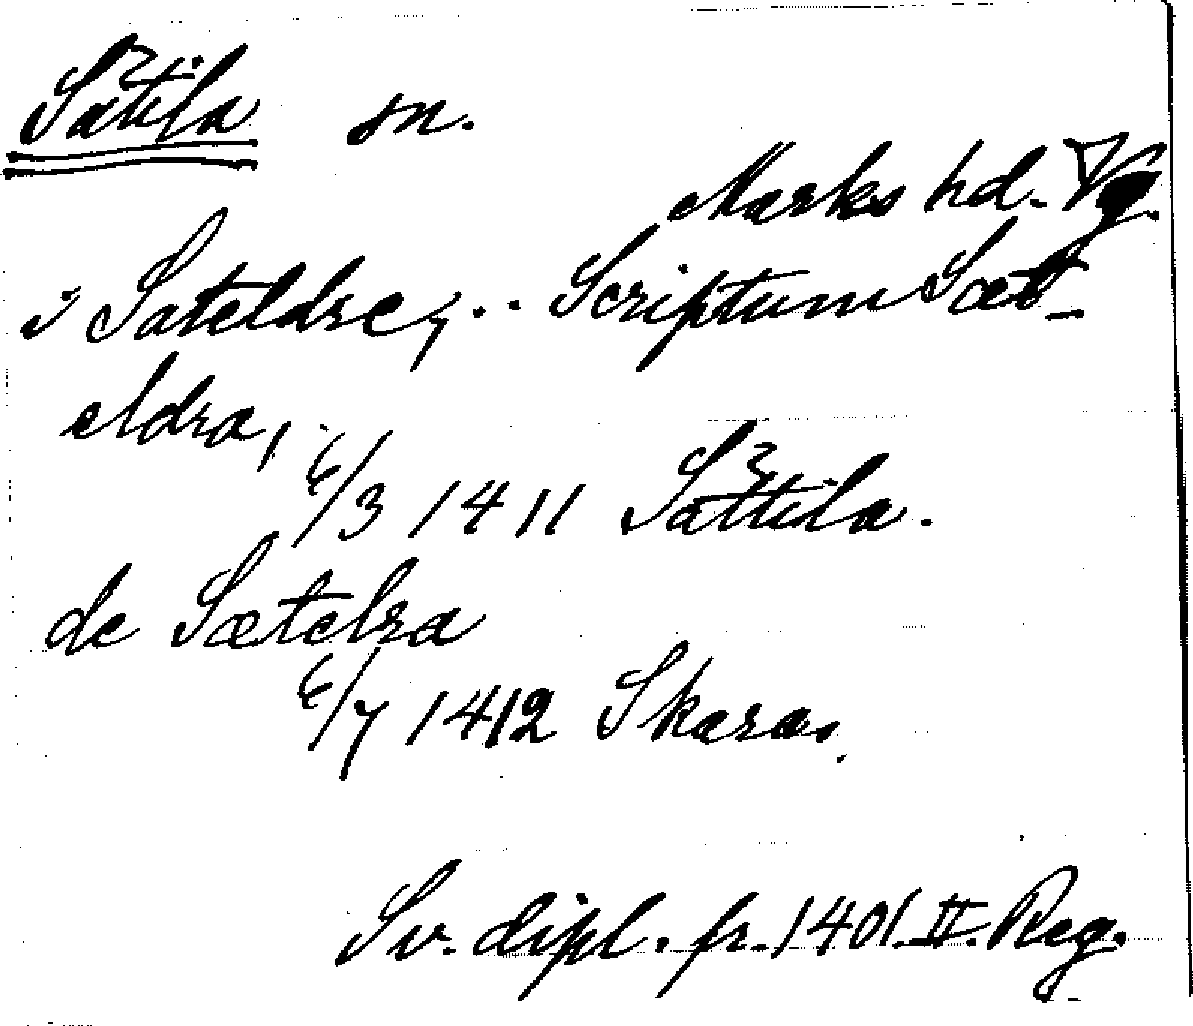 Sätila sn.
Marks hd. Vg.
i Sateldre, .. Scriptum Sæt-
eldra,
6/3 1411 Sättila.
de Sætelra
6/7 1412 Skara.
Sv. dipl. fr. 1401 II. Reg.